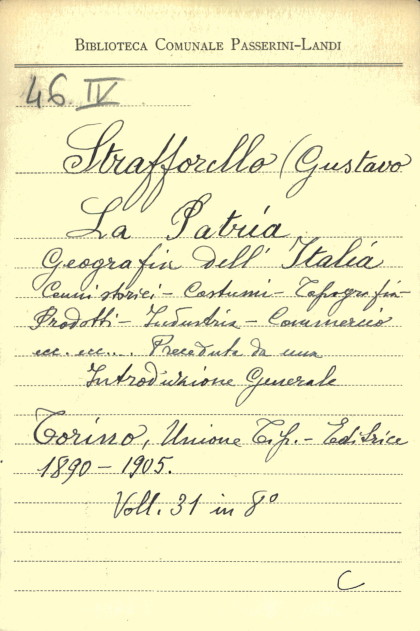 BIBLIOTECA COMUNALE PASSERINI-LANDI
46 IV
Strafforello (Gustavo
La Patria
Geografia dell' Italia
Cenni storici - Costumi - Topografia -
Prodotti - Industria - Commercio
ecc. ecc.... Preceduta da una
Introduzione Generale
Torino, Unione Tip. - Editrice
1890 - 1905.
Voll. 31 in 8°
C